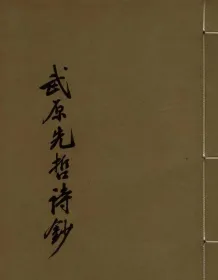 武原先哲诗钞